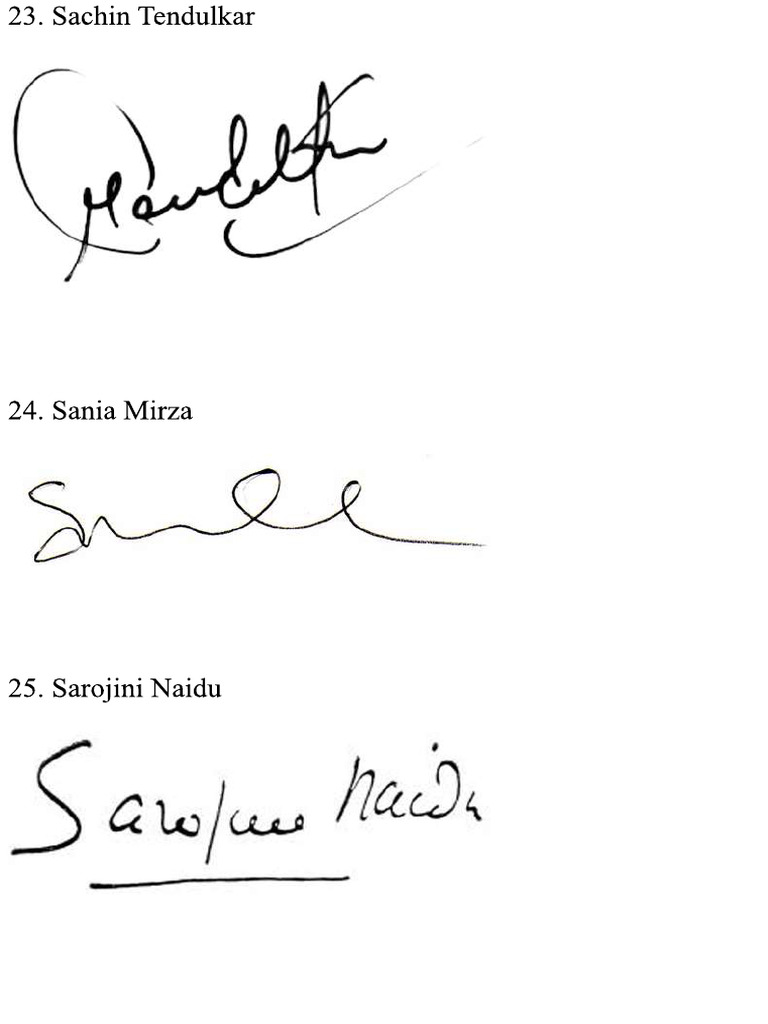 23. Sachin Tendulkar
24. Sania Mirza
25. Sarojini Naidu
Sarojini Naidu